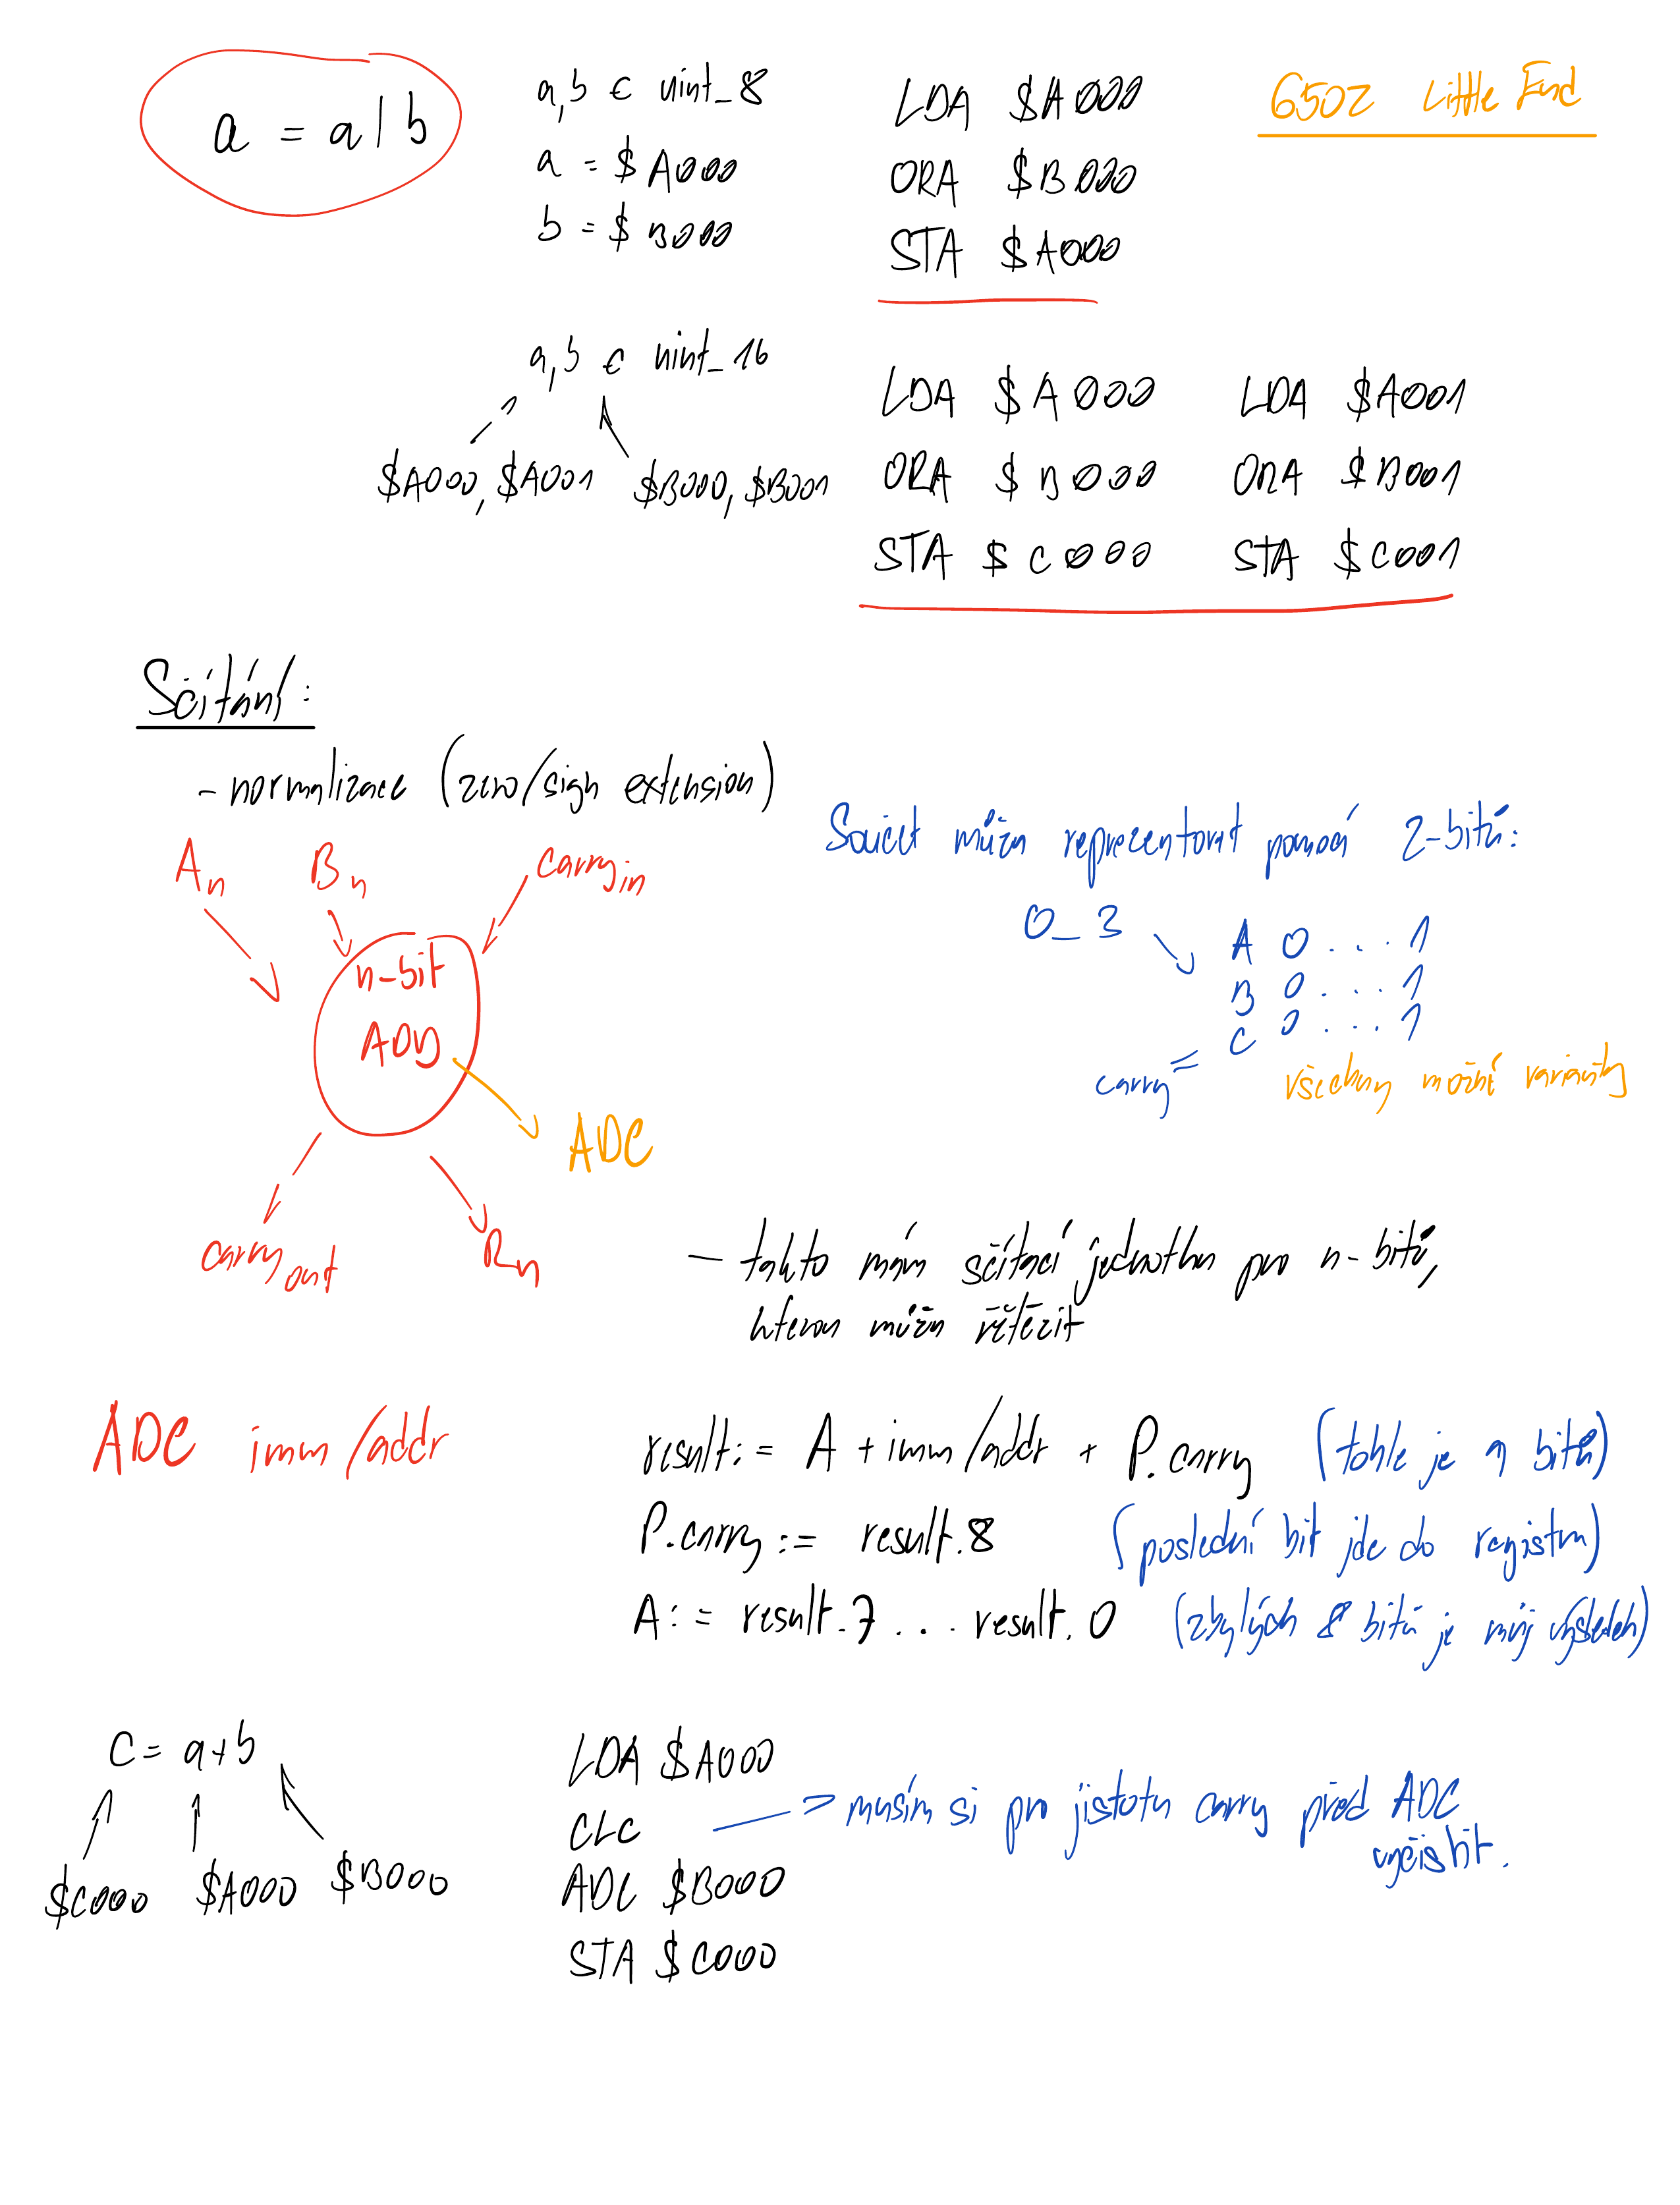 a = a | b
a,b ∈ uint_8
a = $A000
b = $B000
LDA $A000
ORA $B000
STA $A000
6502 Little End
a,b ∈ uint_16
$A000, $A001
$B000, $B001
LDA $A000
ORA $B000
STA $C000
LDA $A001
ORA $B001
STA $C001
Sčítání:
- normalizace (zero/sign extension)
An
Bn
carry in
n-bit
ADD
ADC
carry out
Rn
Součet můžu reprezentovat pomocí 2-bitů:
0_3
A 0 . . . 1
B 0 . . . 1
C 0 . . . 1
carry =
všechny možné varianty
- takto mám sčítací jednotku pro n-bitů,
kterou můžu řetězit
ADC imm/addr
result := A + imm/addr + P.carry (tohle je 9 bitů)
P.carry := result.8 (poslední bit jde do registru)
A := result.7 ... result.0 (zbylých 8 bitů je můj výsledek)
C = a+b
$C000
$A000
$B000
LDA $A000
CLC
ADC $B000
STA $C000
musím si pro jistotu carry před ADC
vyčistit.